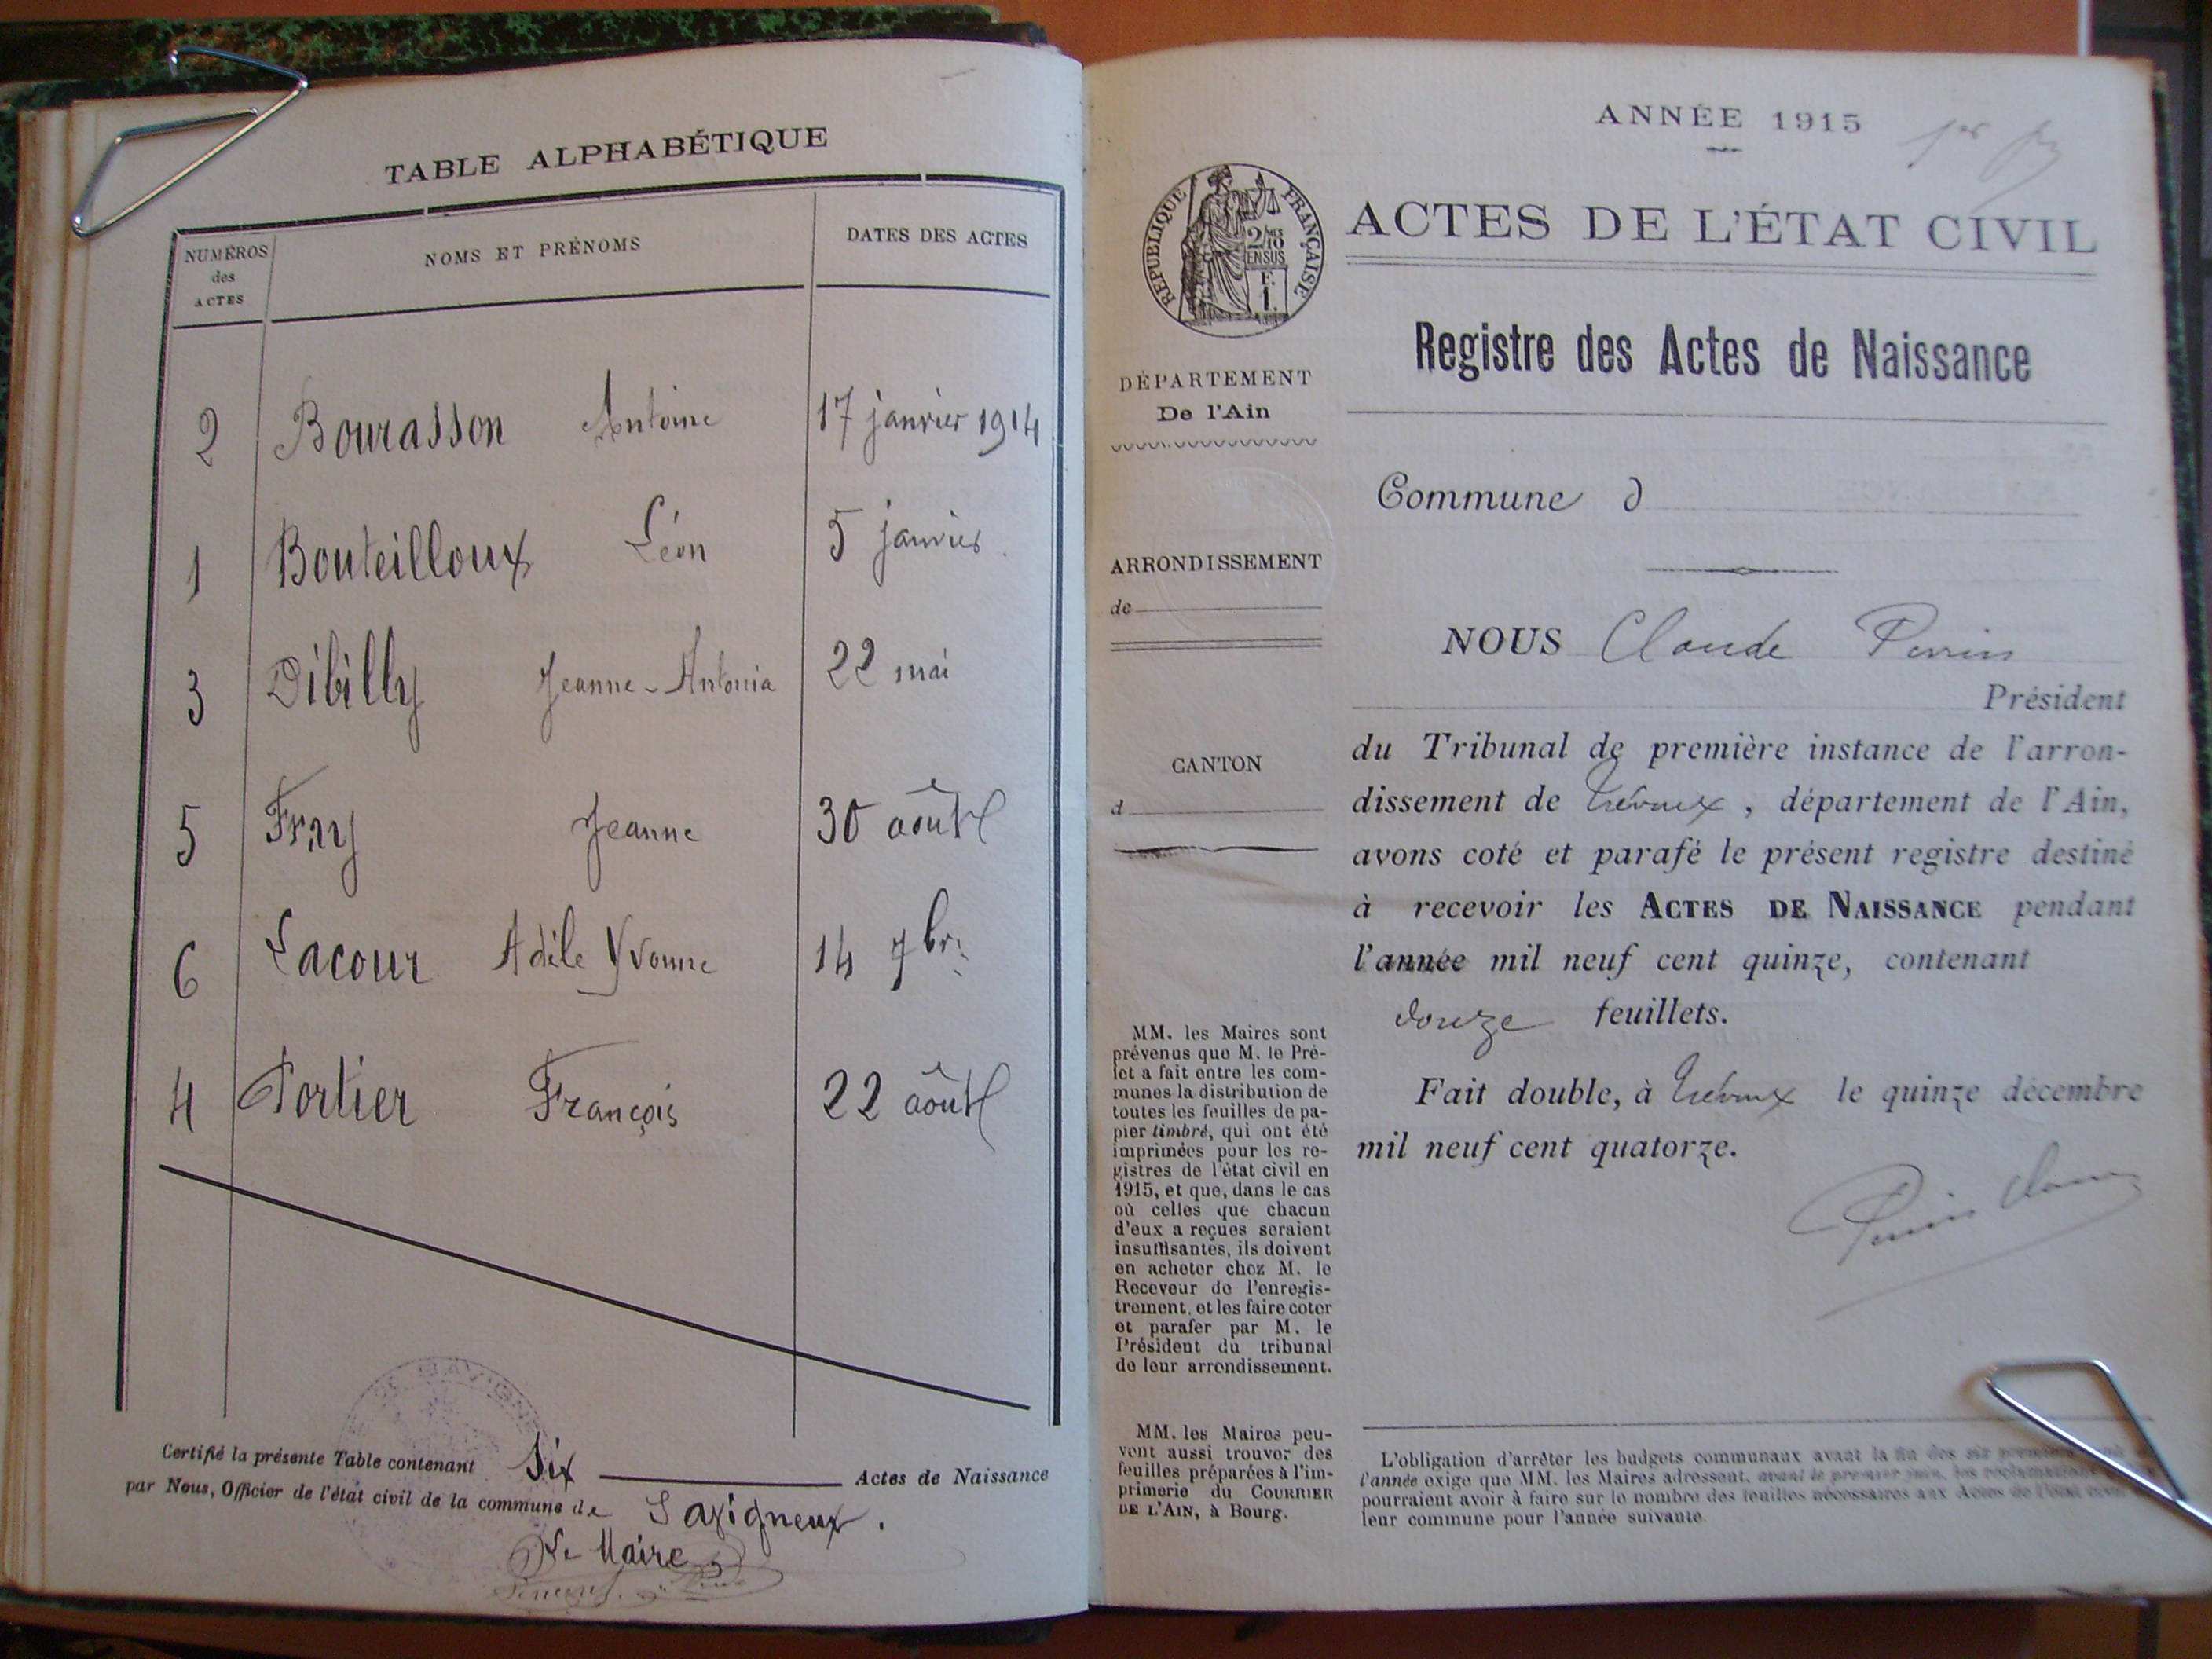 TABLE ALPHABÉTIQUE
NUMÉROS
des
ACTES
NOMS ET PRÉNOMS
DATES DES ACTES
2 Bourasson Antoine 17 janvier 1914
1 Bouteilloux Léon 5 janvier
3 Dibilly Jeanne-Antonia 22 mai
5 Jeanne 30 août
6 Lacour Adèle Yvonne 14 7br:
4 Portier François 22 août
Certifié la présente Table contenant Six Actes de Naissance
par Nous, Officier de l'état civil de la commune de Savigneux.
Le Maire
ANNÉE 1915
1er
RÉPUBLIQUE FRANÇAISE
2/10
EN SUS
F.
1.
ACTES DE L'ÉTAT CIVIL
Registre des Actes de Naissance
DÉPARTEMENT
De l'Ain
Commune d
ARRONDISSEMENT
de
CANTON
d
NOUS Claude Perrin
Président
du Tribunal de première instance de l'arron-
dissement de Trévoux, département de l'Ain,
avons coté et parafé le présent registre destiné
à recevoir les ACTES DE NAISSANCE pendant
l'année mil neuf cent quinze, contenant
douze feuillets.
Fait double, à Trévoux le quinze décembre
mil neuf cent quatorze.
MM. les Maires sont
prévenus que M. le Pré-
fet a fait entre les com-
munes la distribution de
toutes les feuilles de pa-
pier timbré, qui ont été
imprimées pour les re-
gistres de l'état civil en
1915, et que, dans le cas
où celles que chacun
d'eux a reçues seraient
insuffisantes, ils doivent
en acheter chez M. le
Receveur de l'enregis-
trement, et les faire coter
et parafer par M. le
Président du tribunal
de leur arrondissement.
MM. les Maires peu-
vent aussi trouver des
feuilles préparées à l'im-
primerie du COURRIER
DE L'AIN, à Bourg.
L'obligation d'arrêter les budgets communaux avant la fin des six premiers
l'année exige que MM. les Maires adressent, avant le premier juin, les réclamations
pourraient avoir à faire sur le nombre des feuilles nécessaires aux Actes de l'état civil
leur commune pour l'année suivante.